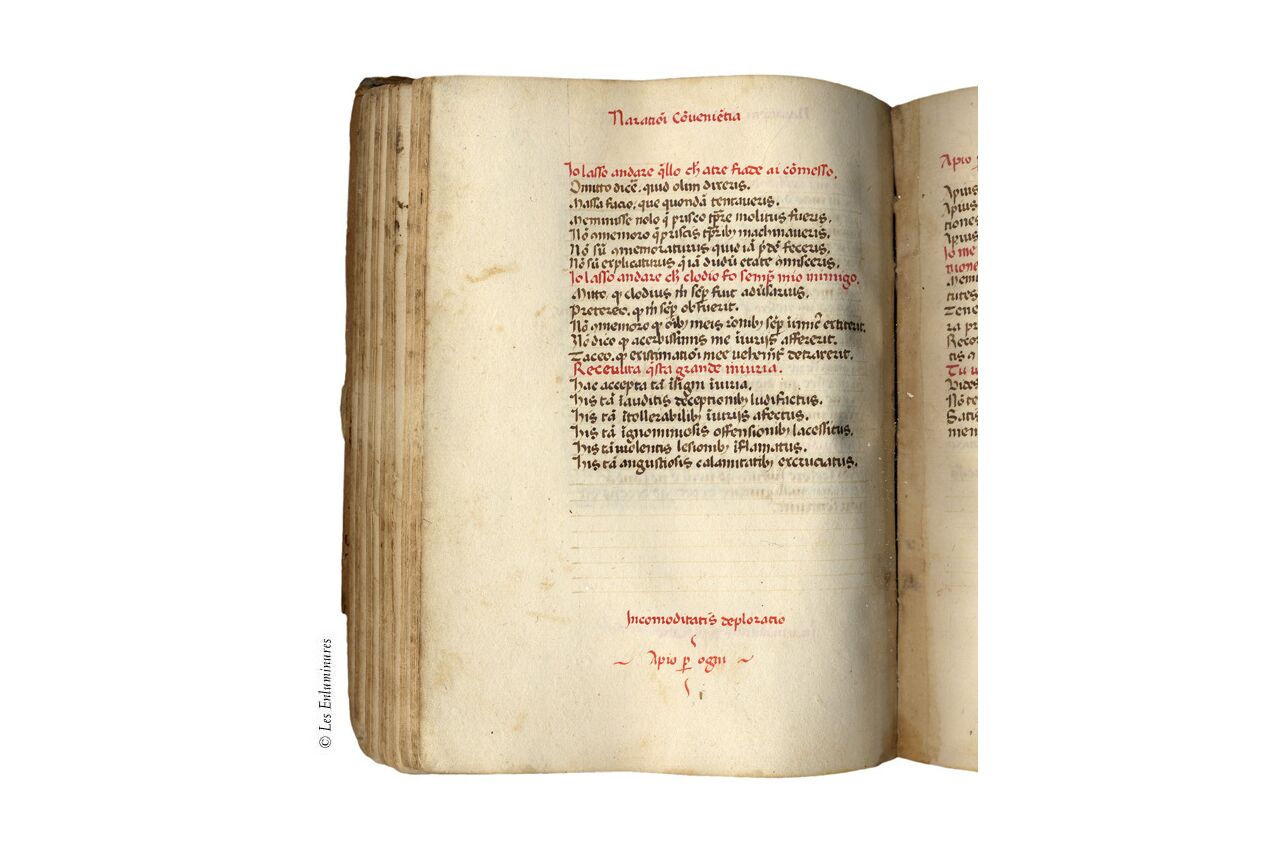 Naratiōi cōueniētia
Io lasso andare q̄llo ch̄ atre fiade ai cōmesso.
Omitto dicē. quid olim dixeris.
Massa facio. que quondā tentaueris.
Meminisse nolo q̄ prisco tp̄re molitus fueris.
Nō memoro q̄ priscis tp̄rib; machinaueris.
Nō sū memoraturus quid iā p̄dē feceris.
Nō sū explicaturus q̄ iā dudū etate
Io lasso andare ch̄ clodio fo semp̄ mio inimigo.
Mitto. q; clodius m̄ sep̄ fuit aduersarius.
Pretereo. q; m̄ sep̄ obfuerit.
Nō memoro q; oīb; meis rōnib; sep̄ extiterit.
Nō dico q; acerbissimis me iīuriis affererit.
Taceo. q; existimatiōi mee detraxerit.
Receuuta q̄sta grande iniuria.
Hac accepta tā īsigni īiuria.
His tā īauditis deceptionib; ludifactus.
His tā ītollerabilib; īiuriis afectus.
His tā īgnominiosis offensionib; lacessitus.
His tā uiolentis lesionib; īflamatus.
His tā angustiosis calamitatib; excruciatus.
Incomoditatis deploratio
Apio p̱ ogni
Apio
Apius
Apius
tiones
Apius
Io me
tione
Memi
tutes
Tene
ra pr
Recor
tis
Tu u
Vides
Nō te
Satis
men
© Les Enluminures